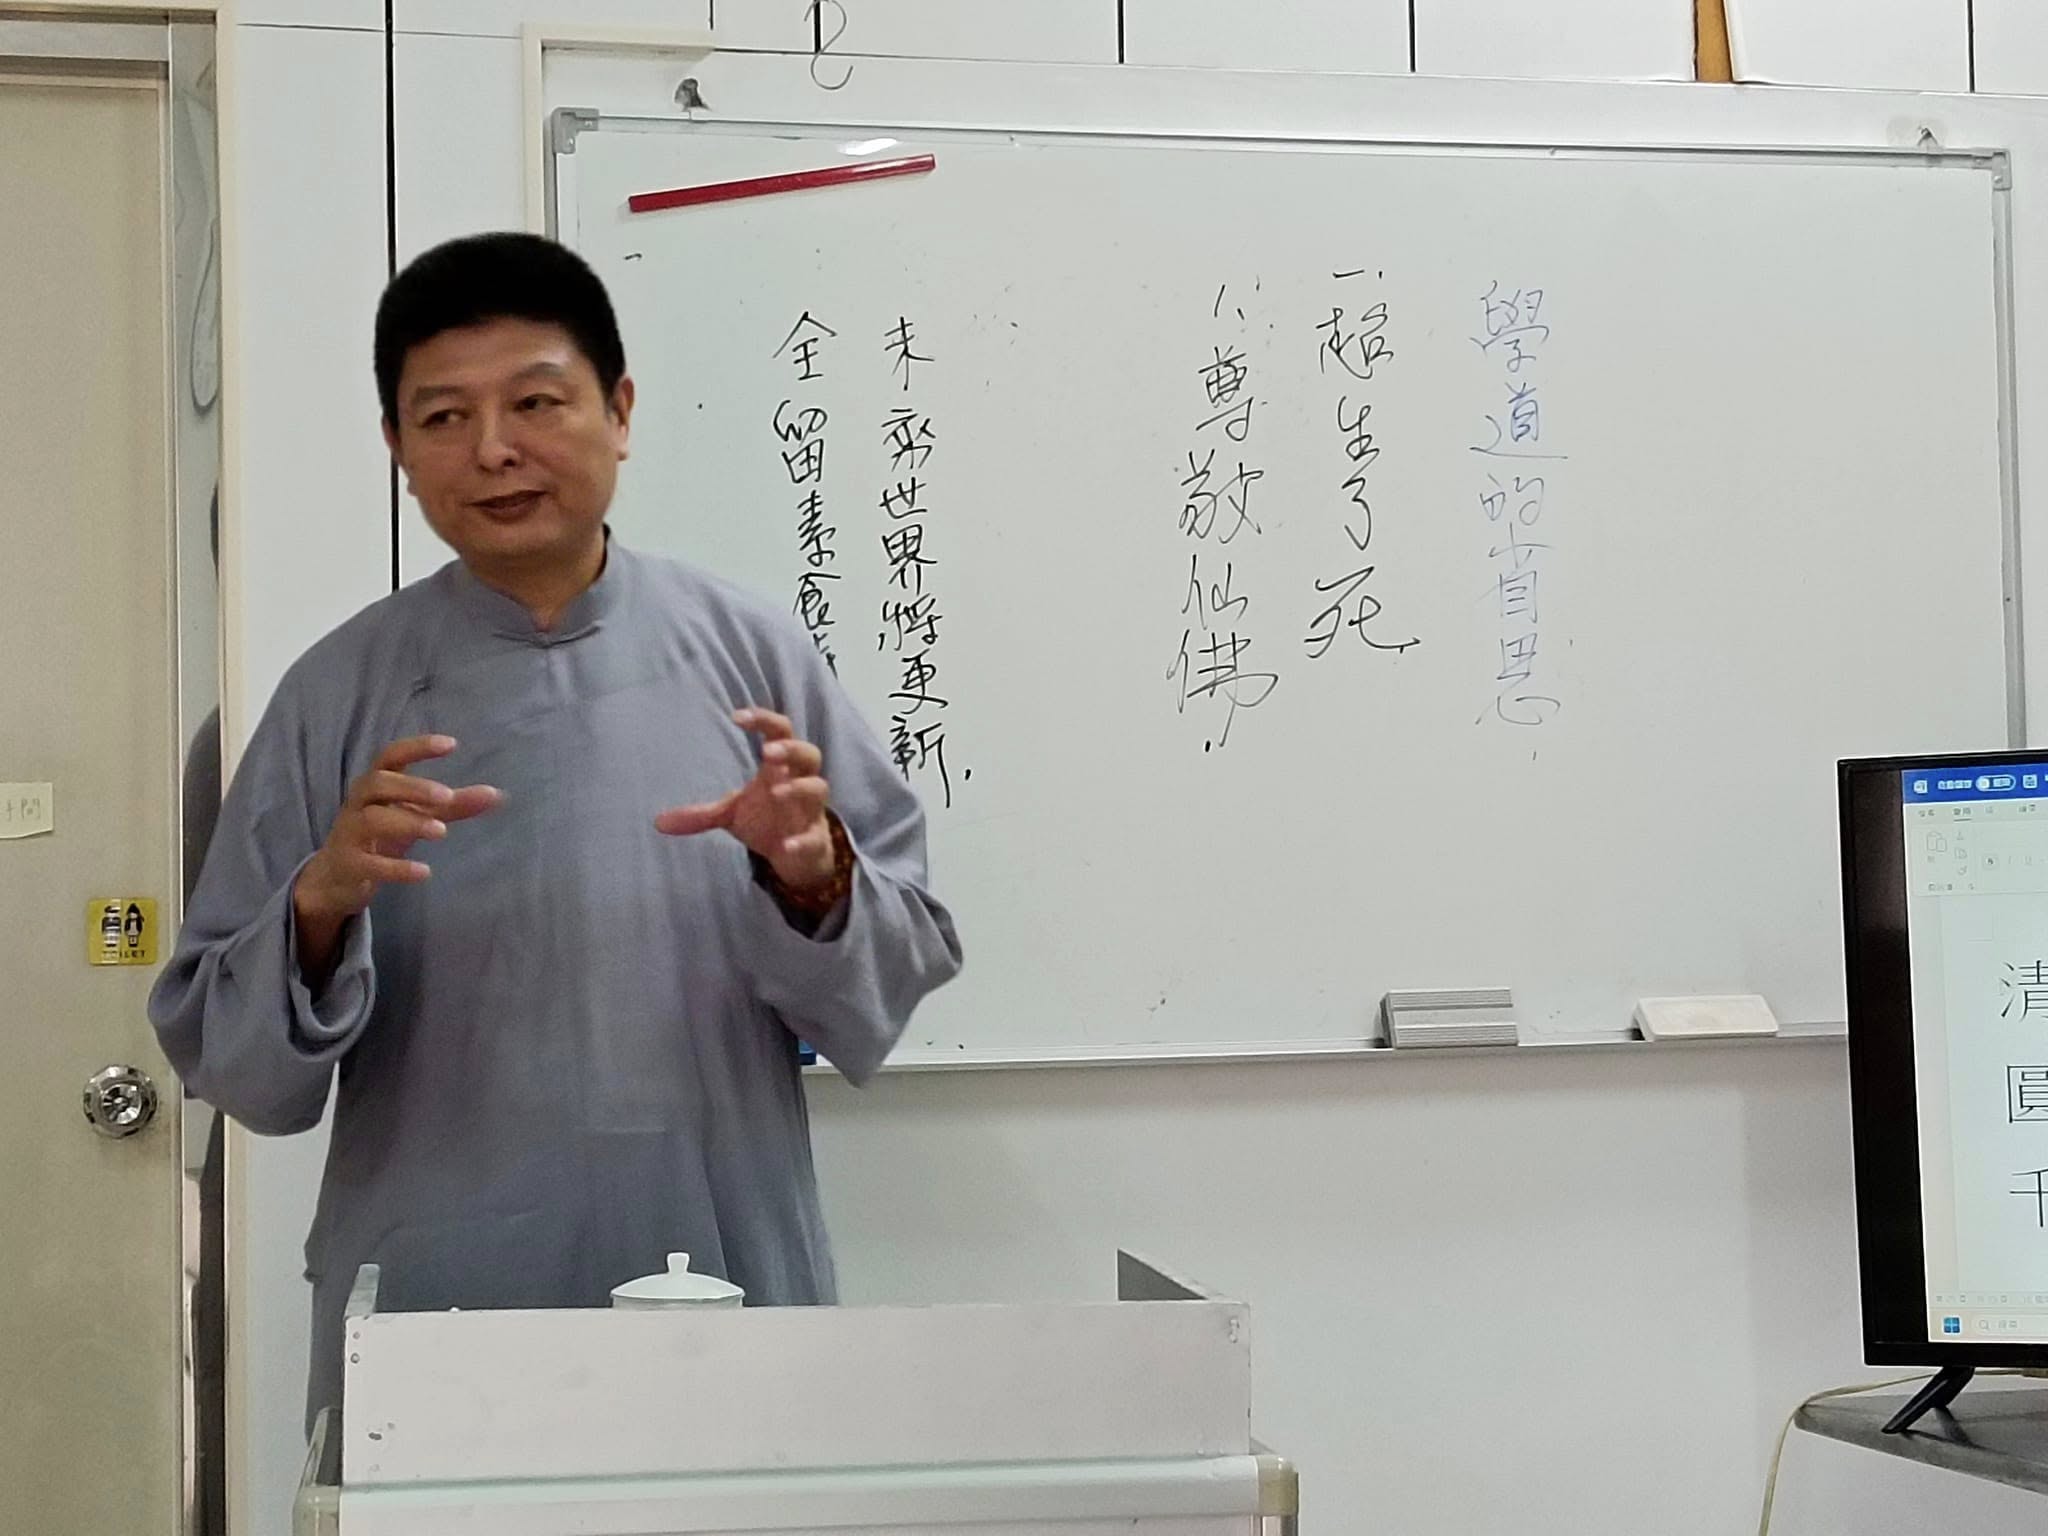 學道的省思
一、超生了死
1、尊敬仙佛
未來世界將更新
全留素食
TOILET
清
圓
千